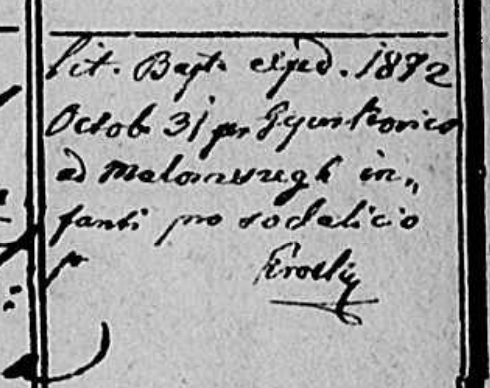 lit. Bapt. exped. 1872
Octob 31 per Gyurkovics
ad Malomszegh in„
fanti pro sodalicio